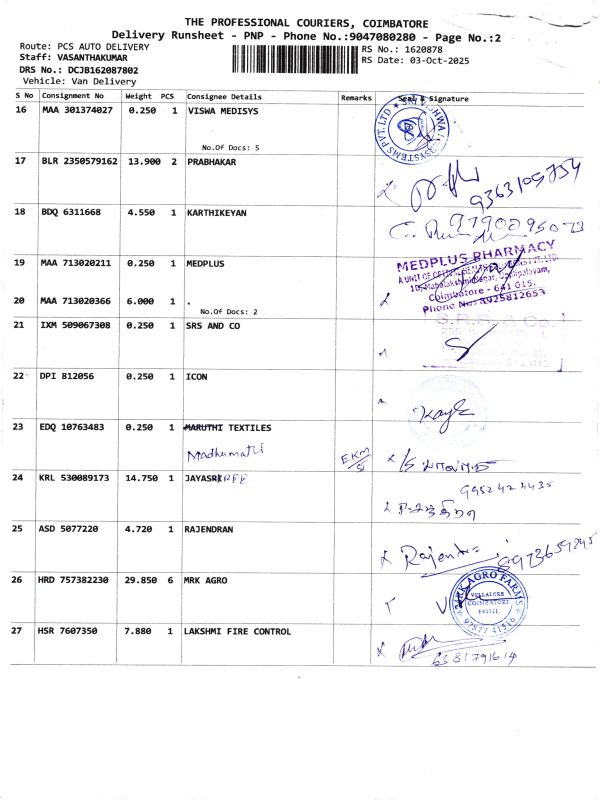 THE PROFESSIONAL COURIERS, COIMBATORE
Delivery Runsheet - PNP - Phone No.:9047080280 - Page No.:2
Route: PCS AUTO DELIVERY
RS No.: 1620878
Staff: VASANTHAKUMAR
RS Date: 03-Oct-2025
DRS No.: DCJB162087802
Vehicle: Van Delivery
S No Consignment No Weight PCS Consignee Details Remarks Seal & Signature
16 MAA 301374027 0.250 1 VISWA MEDISYS
No.Of Docs: 5
17 BLR 2350579162 13.900 2 PRABHAKAR
9363105754
18 BDQ 6311668 4.550 1 KARTHIKEYAN
9790095073
19 MAA 713020211 0.250 1 MEDPLUS
MEDPLUS PHARMACY
Coimbatore - 641 015.
Phone No: 8925812653
20 MAA 713020366 6.000 1 .
No.Of Docs: 2
21 IXM 509067308 0.250 1 SRS AND CO
22 DPI 812056 0.250 1 ICON
23 EDQ 10763483 0.250 1 MARUTHI TEXTILES
Madhumathi
EKM
24 KRL 530089173 14.750 1 JAYASRIREE
9952424435
25 ASD 5077220 4.720 1 RAJENDRAN
Rajendra
8973659845
26 HRD 757382230 29.850 6 MRK AGRO
MRK AGRO FARMS
VELLALORE
COIMBATORE
641111.
97877 41516
27 HSR 7607350 7.880 1 LAKSHMI FIRE CONTROL
6381791614